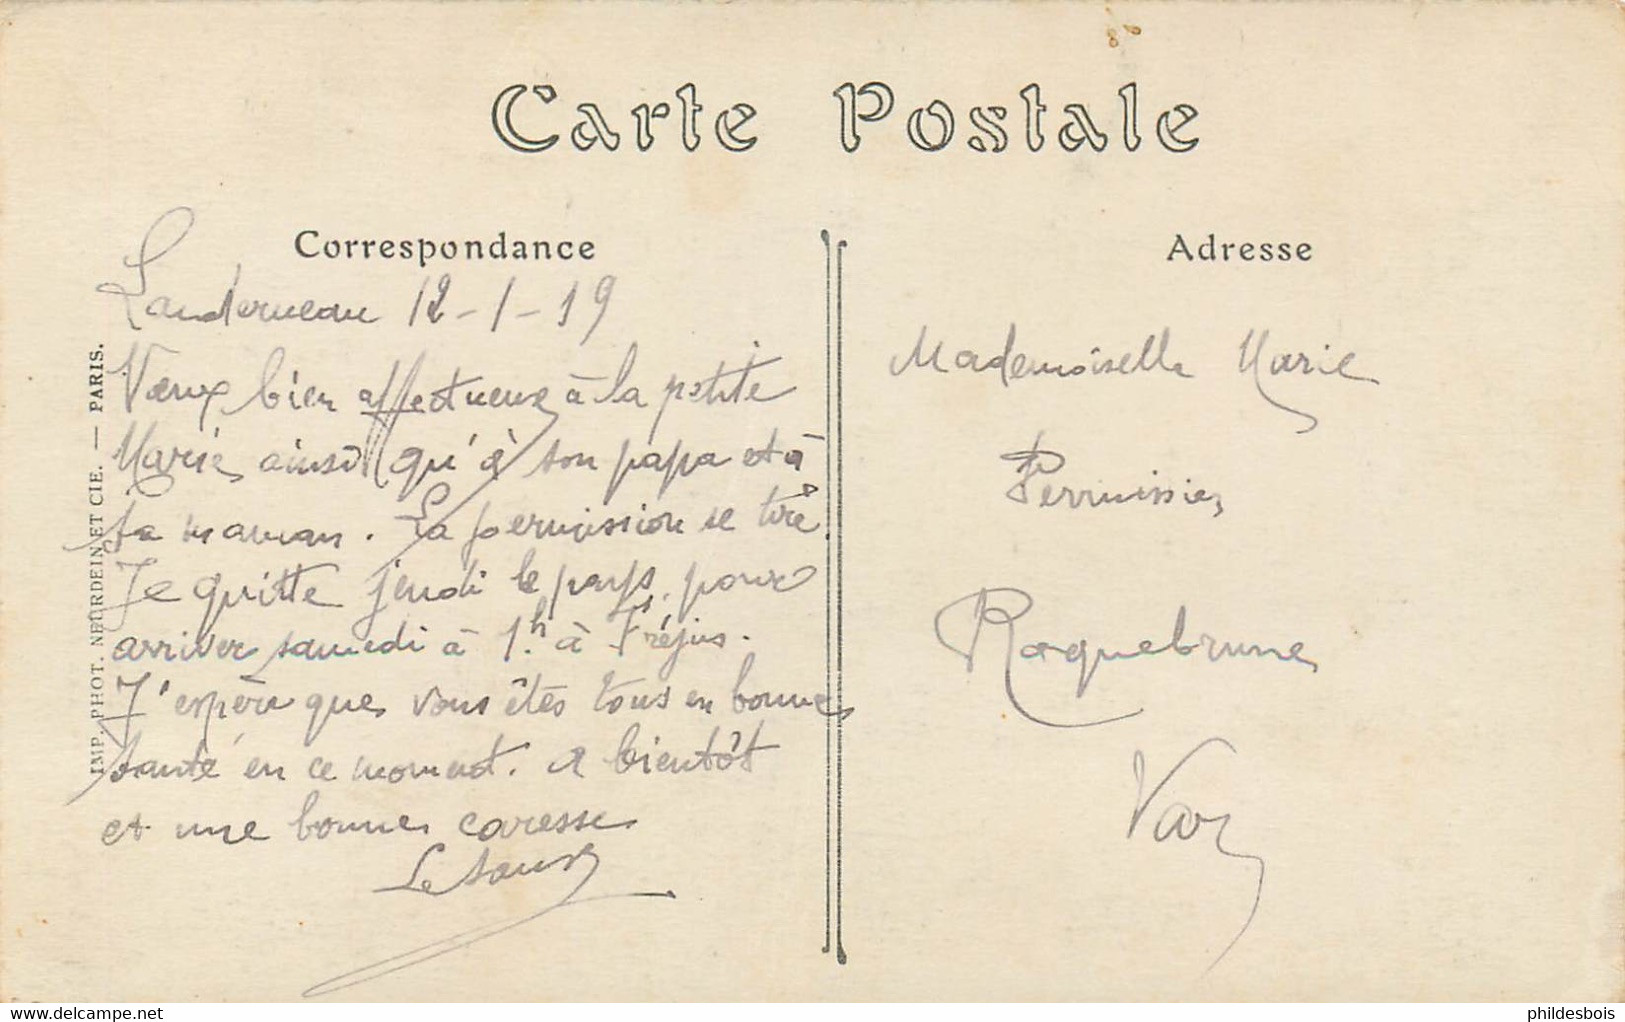 Carte Postale
Correspondance
Landerneau 12-1-19
Vœux bien affectueux à la petite
Marie ainsi qu'à son papa et à
sa maman. La permission se tire.
Je quitte jeudi le pays pour
arriver samedi à 1.h à Fréjus.
J'espère que vous êtes tous en bonne
santé en ce moment. A bientôt
et une bonne caresse
IMP. PHOT. NEURDEIN ET CIE. — PARIS.
Adresse
Mademoiselle Marie
Roquebrune
Var
delcampe.net
phildesbois